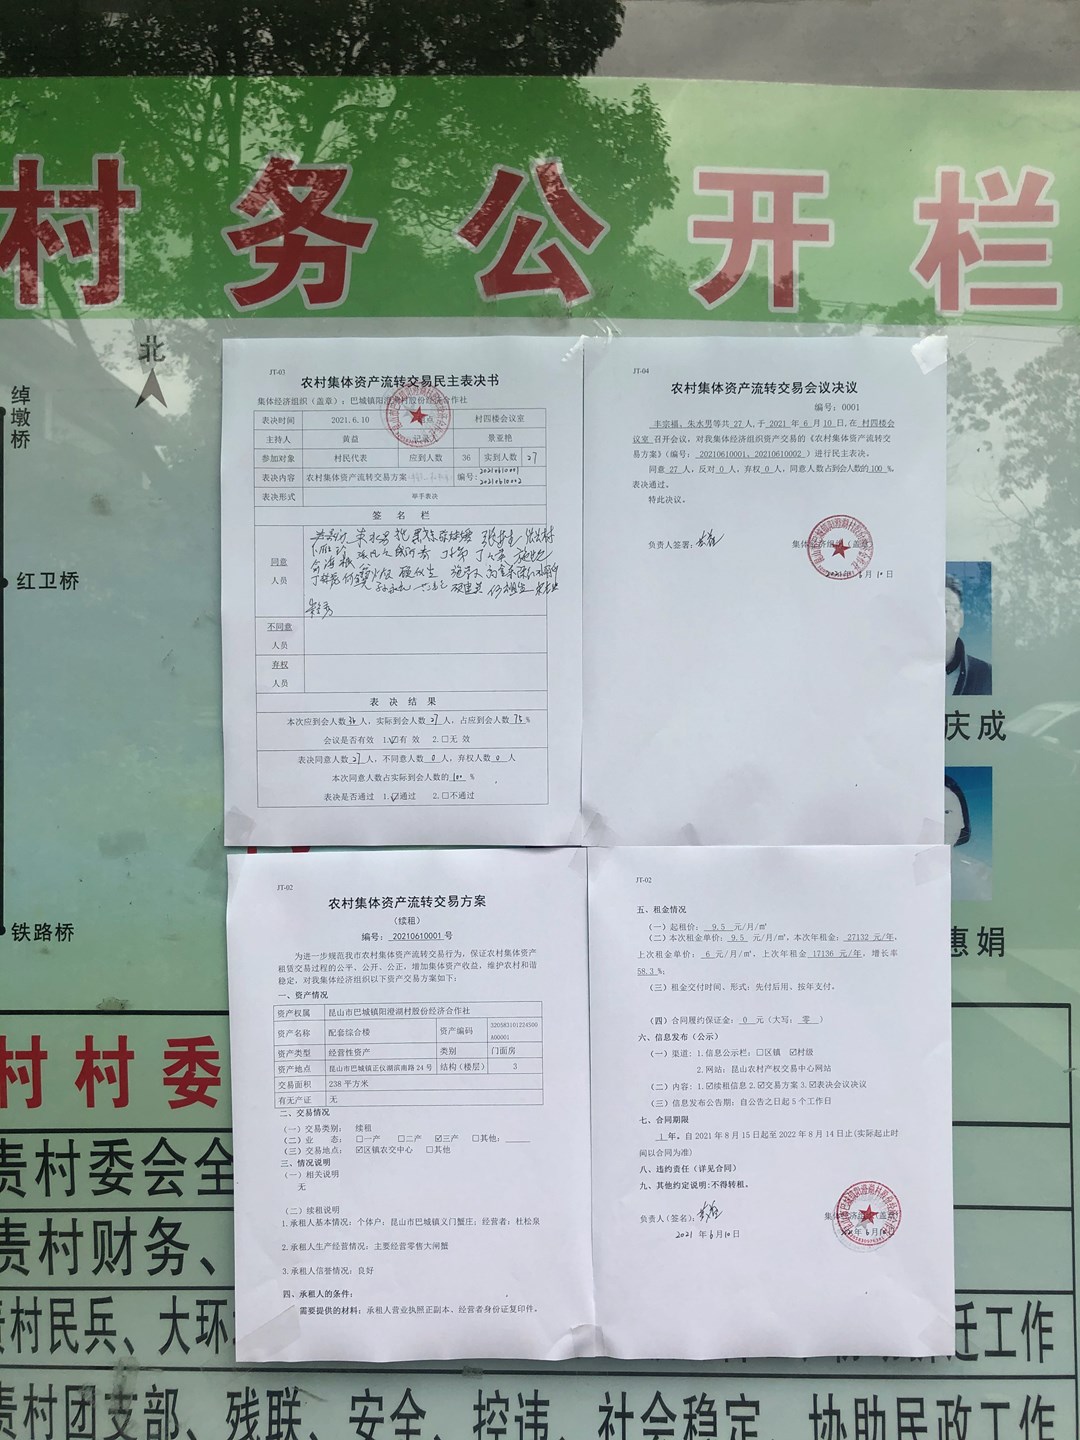 村务公开栏
北
绰墩桥
红卫桥
铁路桥
JT-03
农村集体资产流转交易民主表决书
集体经济组织（盖章）：巴城镇阳澄湖村股份经济合作社
表决时间 2021.6.10 地点 村四楼会议室
主持人 黄益 记录人 景亚艳
参加对象 村民代表 应到人数 36 实到人数 27
表决内容 农村集体资产流转交易方案 编号: 20210610001
20210610002
表决形式 举手表决
签 名 栏
同意
人员
不同意
人员
弃权
人员
表 决 结 果
本次应到会人数 36 人，实际到会人数 27 人，占应到会人数 75 %
会议是否有效 1.☑有 效 2.□无 效
表决同意人数 27 人，不同意人数 0 人，弃权人数 0 人
本次同意人数占实际到会人数的 100 %
表决是否通过 1.☑通过 2.□不通过
JT-04
农村集体资产流转交易会议决议
编号：0001
丰宗福、朱水男等共 27 人，于 2021 年 6 月 10 日，在 村四楼会
议室 召开会议，对我集体经济组织资产交易的《农村集体资产流转交
易方案》（编号： 20210610001、20210610002 ）进行民主表决。
同意 27 人，反对 0 人，弃权 0 人，同意人数占到会人数的 100 %。
表决通过。
特此决议。
负责人签署：
集体经济组织（盖章）
2021年6月10日
庆成
惠娟
JT-02
农村集体资产流转交易方案
（续租）
编号： 20210610001 号
为进一步规范我市农村集体资产流转交易行为，保证农村集体资产
租赁交易过程的公平、公开、公正，增加集体资产收益，维护农村和谐
稳定，对我集体经济组织以下资产交易方案如下：
一、资产情况
资产权属 昆山市巴城镇阳澄湖村股份经济合作社
资产名称 配套综合楼 资产编码 320583101234500
A00001
资产类型 经营性资产 类别 门面房
资产地点 昆山市巴城镇正仪湖滨南路 24 号 结构（楼层） 3
交易面积 238 平方米
有无产证 无
二、交易情况
（一）交易类别： 续租
（二）业 态： □一产 □二产 ☑三产 □其他：
（三）交易地点： ☑区镇农交中心 □其他
三、情况说明
（一）相关说明
无
（二）续租说明
1.承租人基本情况：个体户：昆山市巴城镇义门蟹庄；经营者：杜松泉
2.承租人生产经营情况：主要经营零售大闸蟹
3.承租人信誉情况：良好
四、承租人的条件：
需要提供的材料：承租人营业执照正副本、经营者身份证复印件。
JT-02
五、租金情况
（一）起租价： 9.5 元/月/㎡
（二）本次租金单价： 9.5 元/月/㎡，本次年租金： 27132 元/年，
上次租金单价： 6 元/月/㎡，上次年租金 17136 元/年，增长率
58.3 %；
（三）租金交付时间、形式：先付后用、按年支付。
（四）合同履约保证金： 0 元（大写： 零 ）
六、信息发布（公示）
（一）渠道：1.信息公示栏：□区镇 ☑村级
2.网站：昆山农村产权交易中心网站
（二）内容：1.☑续租信息 2.☑交易方案 3.☑表决会议决议
（三）信息发布公告期：自公告之日起 5 个工作日
七、合同期限
1 年，自 2021 年 8 月 15 日起至 2022 年 8 月 14 日止（实际起止时
间以合同为准）
八、违约责任（详见合同）
九、其他约定说明:不得转租。
负责人（签名）：
集体经济组织（盖章）
2021 年 6 月 10 日
村村委
责村委会全
责村财务、
村民兵、大环
迁工作
责村团支部、残联、安全、控违、社会稳定、协助民政工作